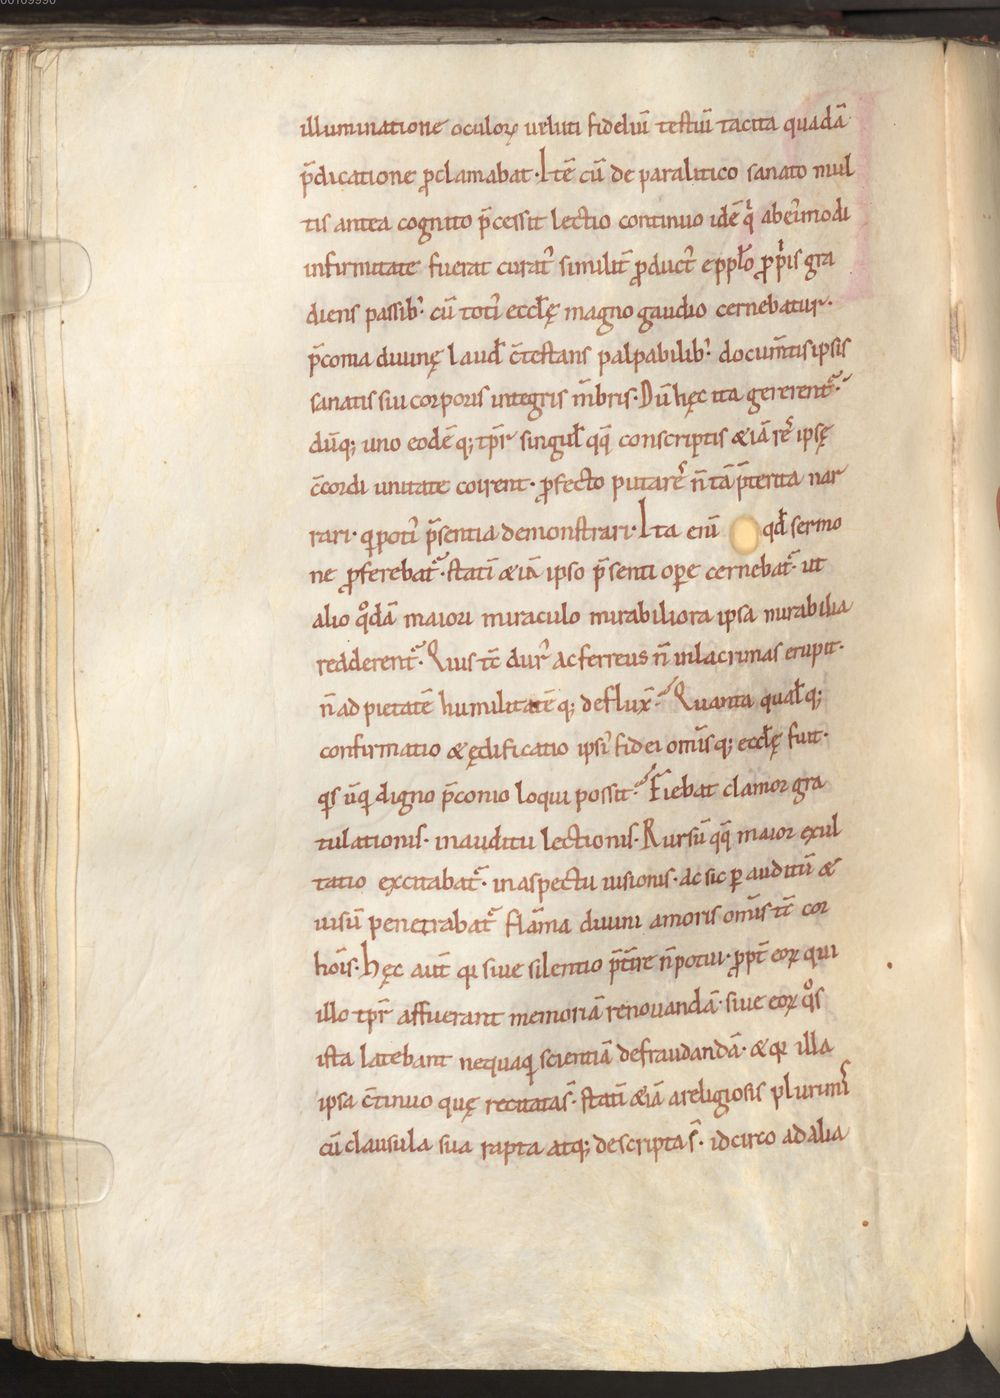 illuminatione oculoꝝ ueluti fideliū testiū tacita quadā
p̄dicatione ꝓclamabat. Itē cū de paralitico sanato mul
tis antea cognito p̄cessit lectio continuo idē q̇ ab ei᷒modi
infirmitate fuerat curat᷒ similit̄ ꝓduct᷒ e pplo ꝓpriis gra
diens passib᷒ cū toti᷒ eccłę magno gaudio cernebatur.
p̄conia diuinę laud c̄testans palpabilib᷒ docum̄tis ipsis
sanatis sui corporis integris m̄bris. Dū hęc ita gererent᷑.
dūq; uno eodēq; tp̄r singul qq̄ conscriptis & iā rē ipsę
c̄cordi unitate coirent. ꝓfecto putarē n̄ tā p̄terita nar
rari. q̄ poti᷒ p̄sentia demonstrari. Ita eni qd sermo
ne ꝓferebat᷑. statī & iā ipso p̄senti oꝑe cernebat᷑. ut
alio qͦdā maiori miraculo mirabiliora ipsa mirabilia
redderent᷑. Quis tc̄ dur᷒ ac ferreus n̄ in lacrimas erupit.
n̄ ad pietatē humilitatēq; deflux̄. Quanta qualq;
confirmatio & ędificatio ipsi᷒ fidei om̄isq; eccłę fuit.
qs ūq̄ digno p̄conio loqui possit. Fiebat clamor gra
tulationis. in auditu lectionis. Rursū qq̄ maior exul
tatio excitabat᷑. in aspectu uisionis. ac sic ꝑ auditū &
uisū penetrabat᷑ flāma diuini amoris om̄is tc̄ cor
hōis. Hęc aut̄ qꝛ siue silentio p̄t̄ire n̄ potui. ꝓpt̄ eoꝝ qui
illo tp̄r affuerant memoriā renouandā. siue eoꝝ qͦs
ista latebant nequaq̄ scientiā defraudandā. & qꝛ illa
ipsa c̄tinuo quę recitatas̄. statī & iā a religiosis plurimis
cū clausula sua rapta atq; descripta s̄. idcirco ad alia